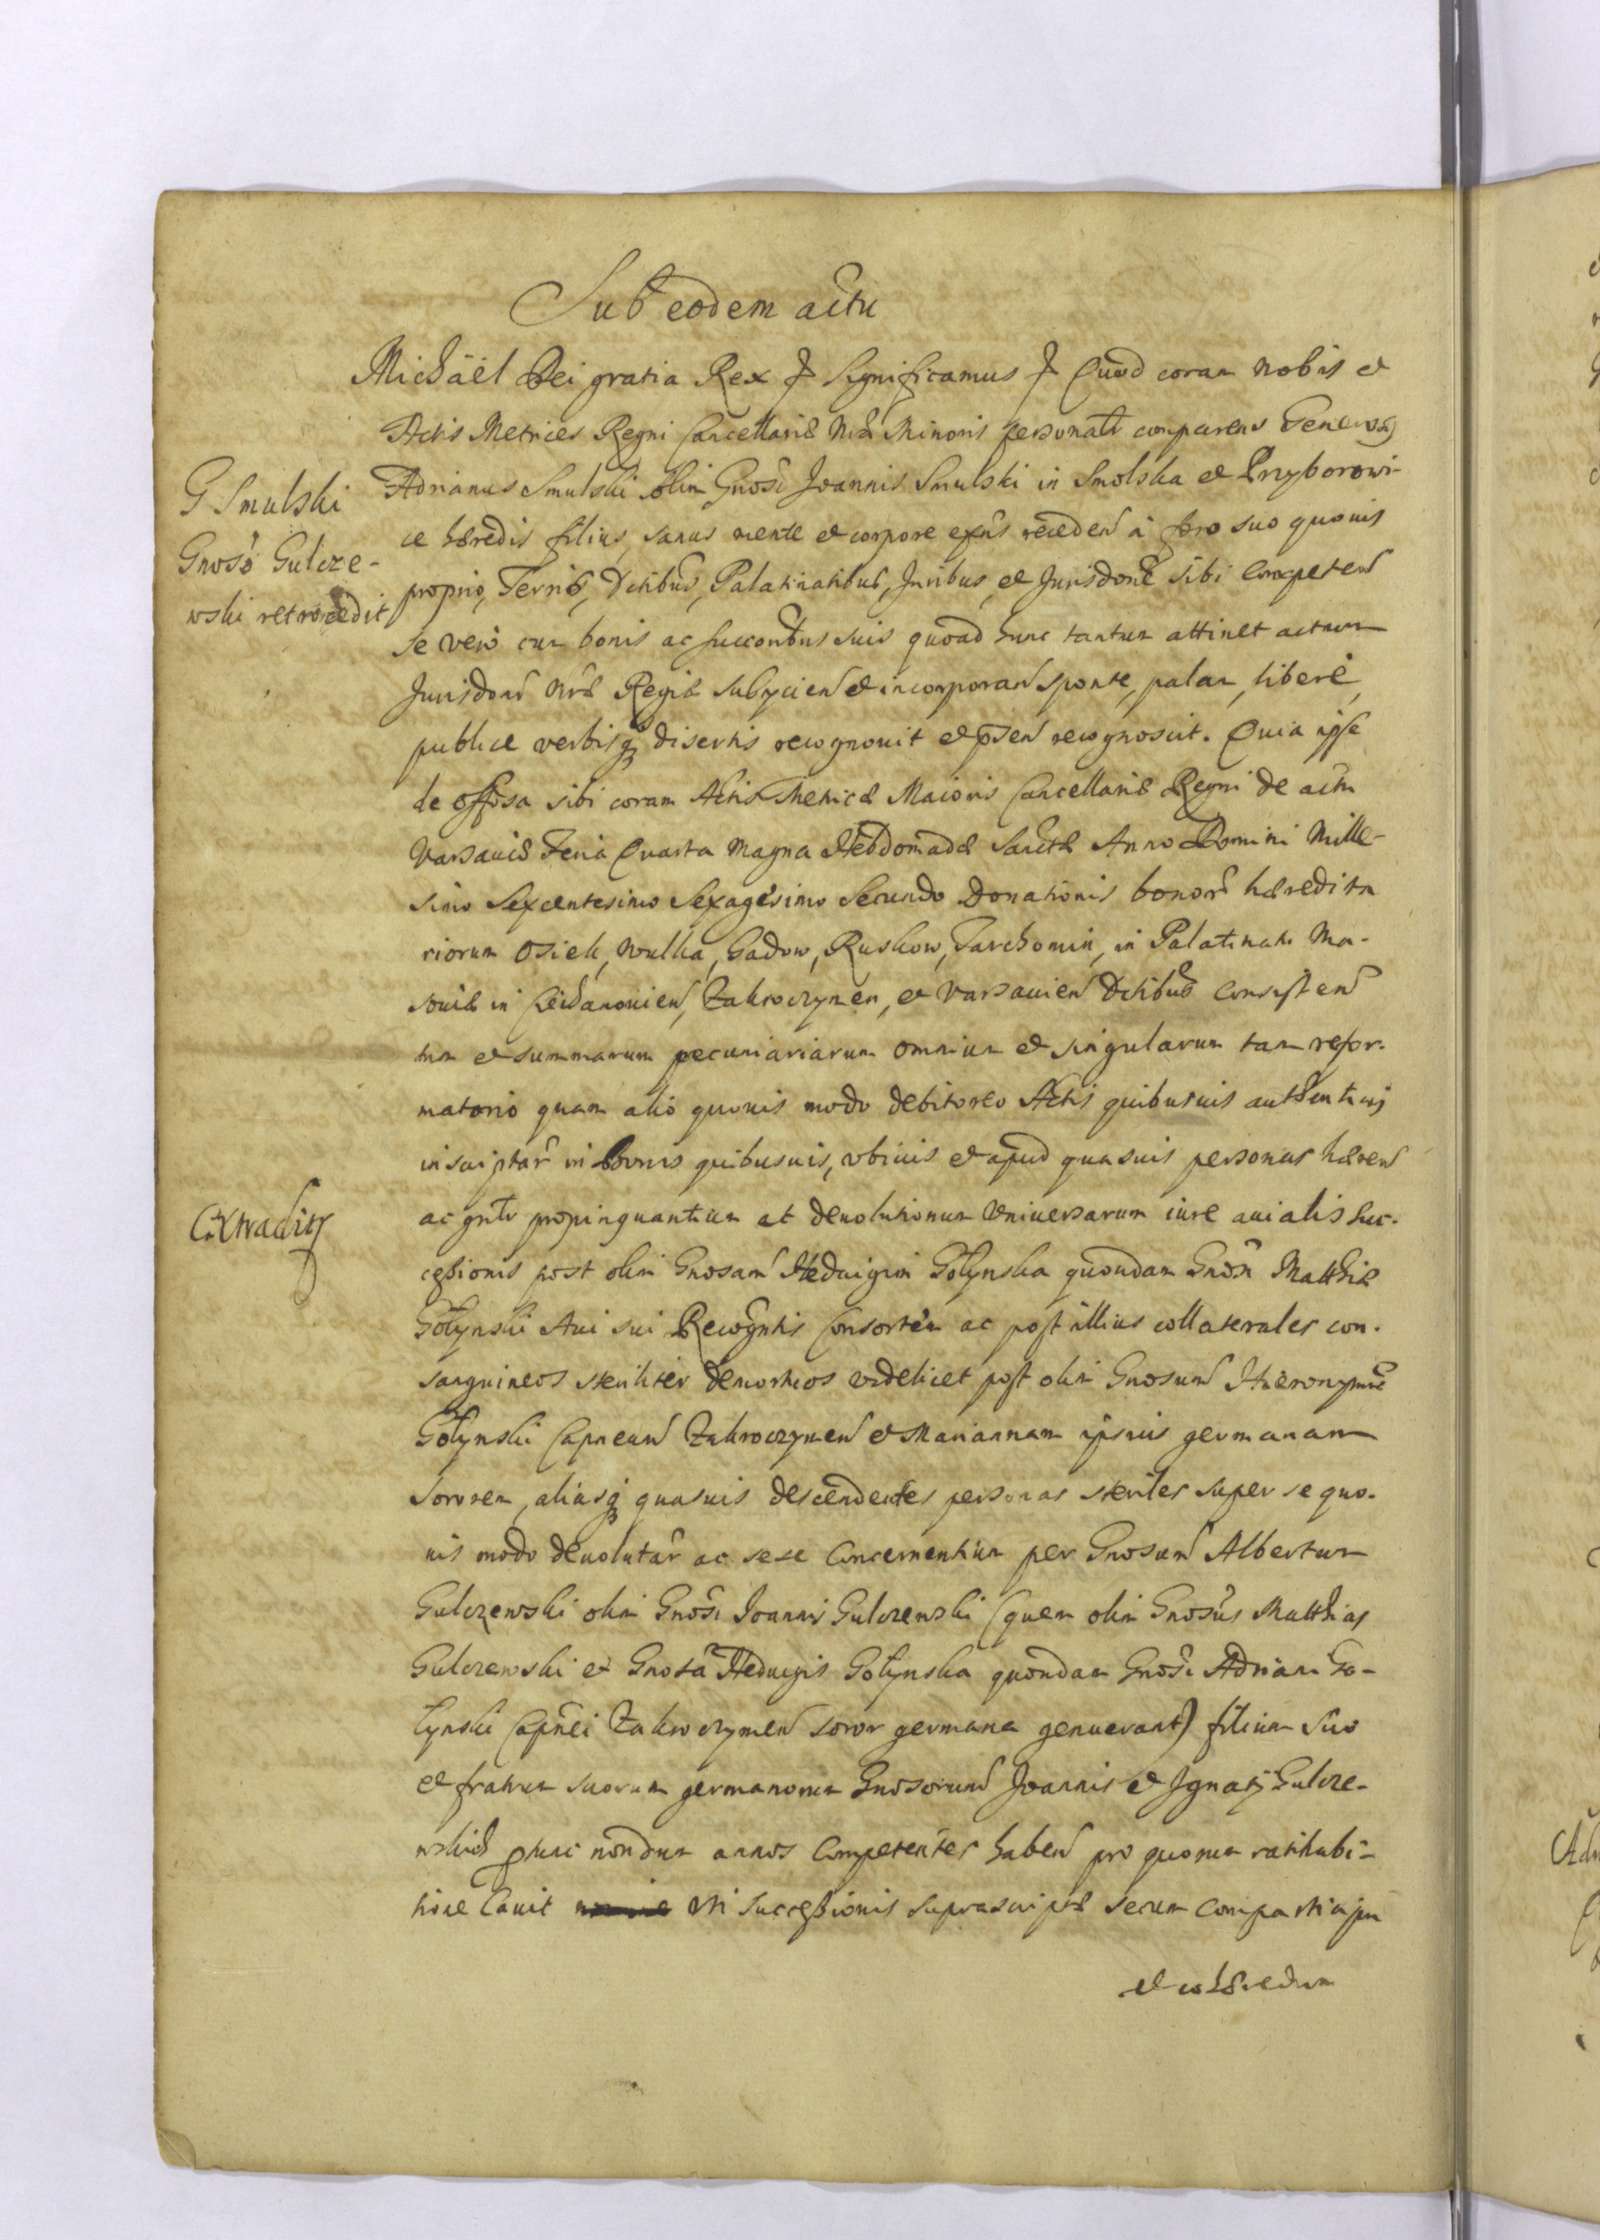 Sub eodem actu
Michäel Dei gratia Rex Significamus Quod coram nobis et
Actis Metrices Regni Cancellariæ Nræ Minoris personalr comparens Generosus
G Smulski
Gnoso Gulcze-
wski retrocedit
Adrianus Smulski olim Gnosi Joannis Smulski in Smolska et Przyborowi-
ce hæredis filius, sanus mente et corpore exns receden à foro suo quouis
proprio, Terris, Dctibus, Palatinatibus, Juribus, et Jurisdone sibi competen
se vero cum bonis ac succoribus suis quoad hunc tantum attinet actum
Jurisdoni Nræ Regiæ subycien et incorporan sponte, palam, liberè,
publice verbisq disertis recognouit et psen recognoscit. Quia ipse
de sibi coram Actis Metricæ Maioris Cancellariæ Regni de actu
Varsauiæ Feria Quarta Magna Hebdomadæ Sanctæ Anno Domini Mille-
simo Sexcentesimo Sexagesimo Secundo Donationis bonor hæredita
riorum Osiek, Wulka, Gadow, Ruskow, Tarchomin, in Palatinatu Ma-
souiæ in Ciechanouien, Zakroczymen, et Varsauien Dctibus consisten
tium et summarum pecuniariarum omnium et singularum tam refor-
matorio quam alio quouis modo debitoreo Actis quibusuis authenticis
inscriptar in bonis quibusuis, vbiuis et apud quasuis personas hæren
Extraditq
ac gnlr propinquantium et deuolutionum Vniuersarum iure auialis suc-
cessionis post olim Gnosam Heduigim Gołynska quondam Gnosi Matthiæ
Gołynski Aui sui Recogntis Consortem ac post illius collaterales con-
sanguineos steriliter demortuos videlicet post olim Gnosum Hieronymum
Gołynski Capneum Zakroczymen et Mariannam ipsius germanam
sororem, aliasq quasuis descendentes personas steriles super se quo-
uis modo deuolutar ac sese concernentium per Gnosum Albertum
Gulczewski olim Gnosi Joannis Gulczewski (quem olim Gnosus Matthias
Gulczewski et Gnosa Heduigis Gołynska quondam Gnosi Adriani Go-
łynski Capnei Zakroczymen soror germana genuerant) filium suo
et fratrum suorum germanorum Gnosorum Joannis et Ignatij Gulcze-
wskich nondum annos competentes haben pro quorum ratihabi-
tione cauit vti successionis suprascriptæ secum
et cohæredum